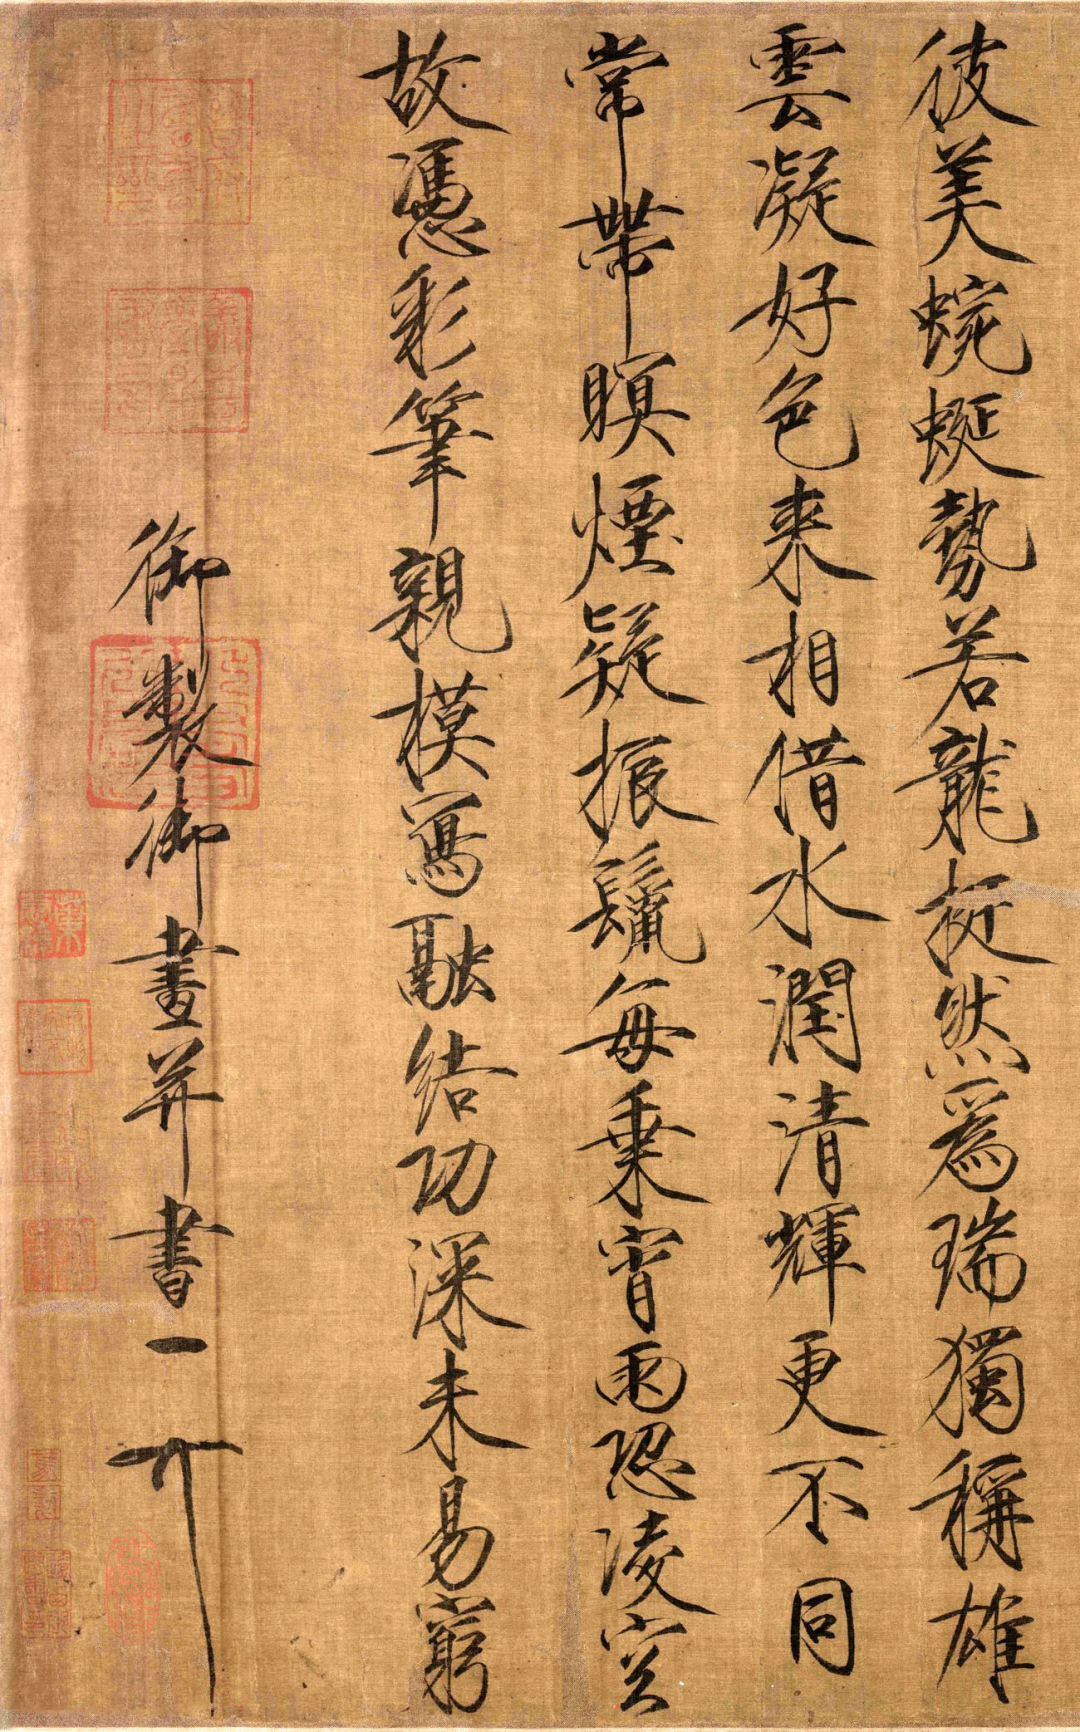 彼美蜿蜒勢若龍挺然爲瑞獨稱雄
雲凝好色来相借水潤清輝更不同
常帶瞑煙疑振鬣每乘宵雨恐凌空
故憑彩筆親模寫融結功深未易窮
御製御畫并書